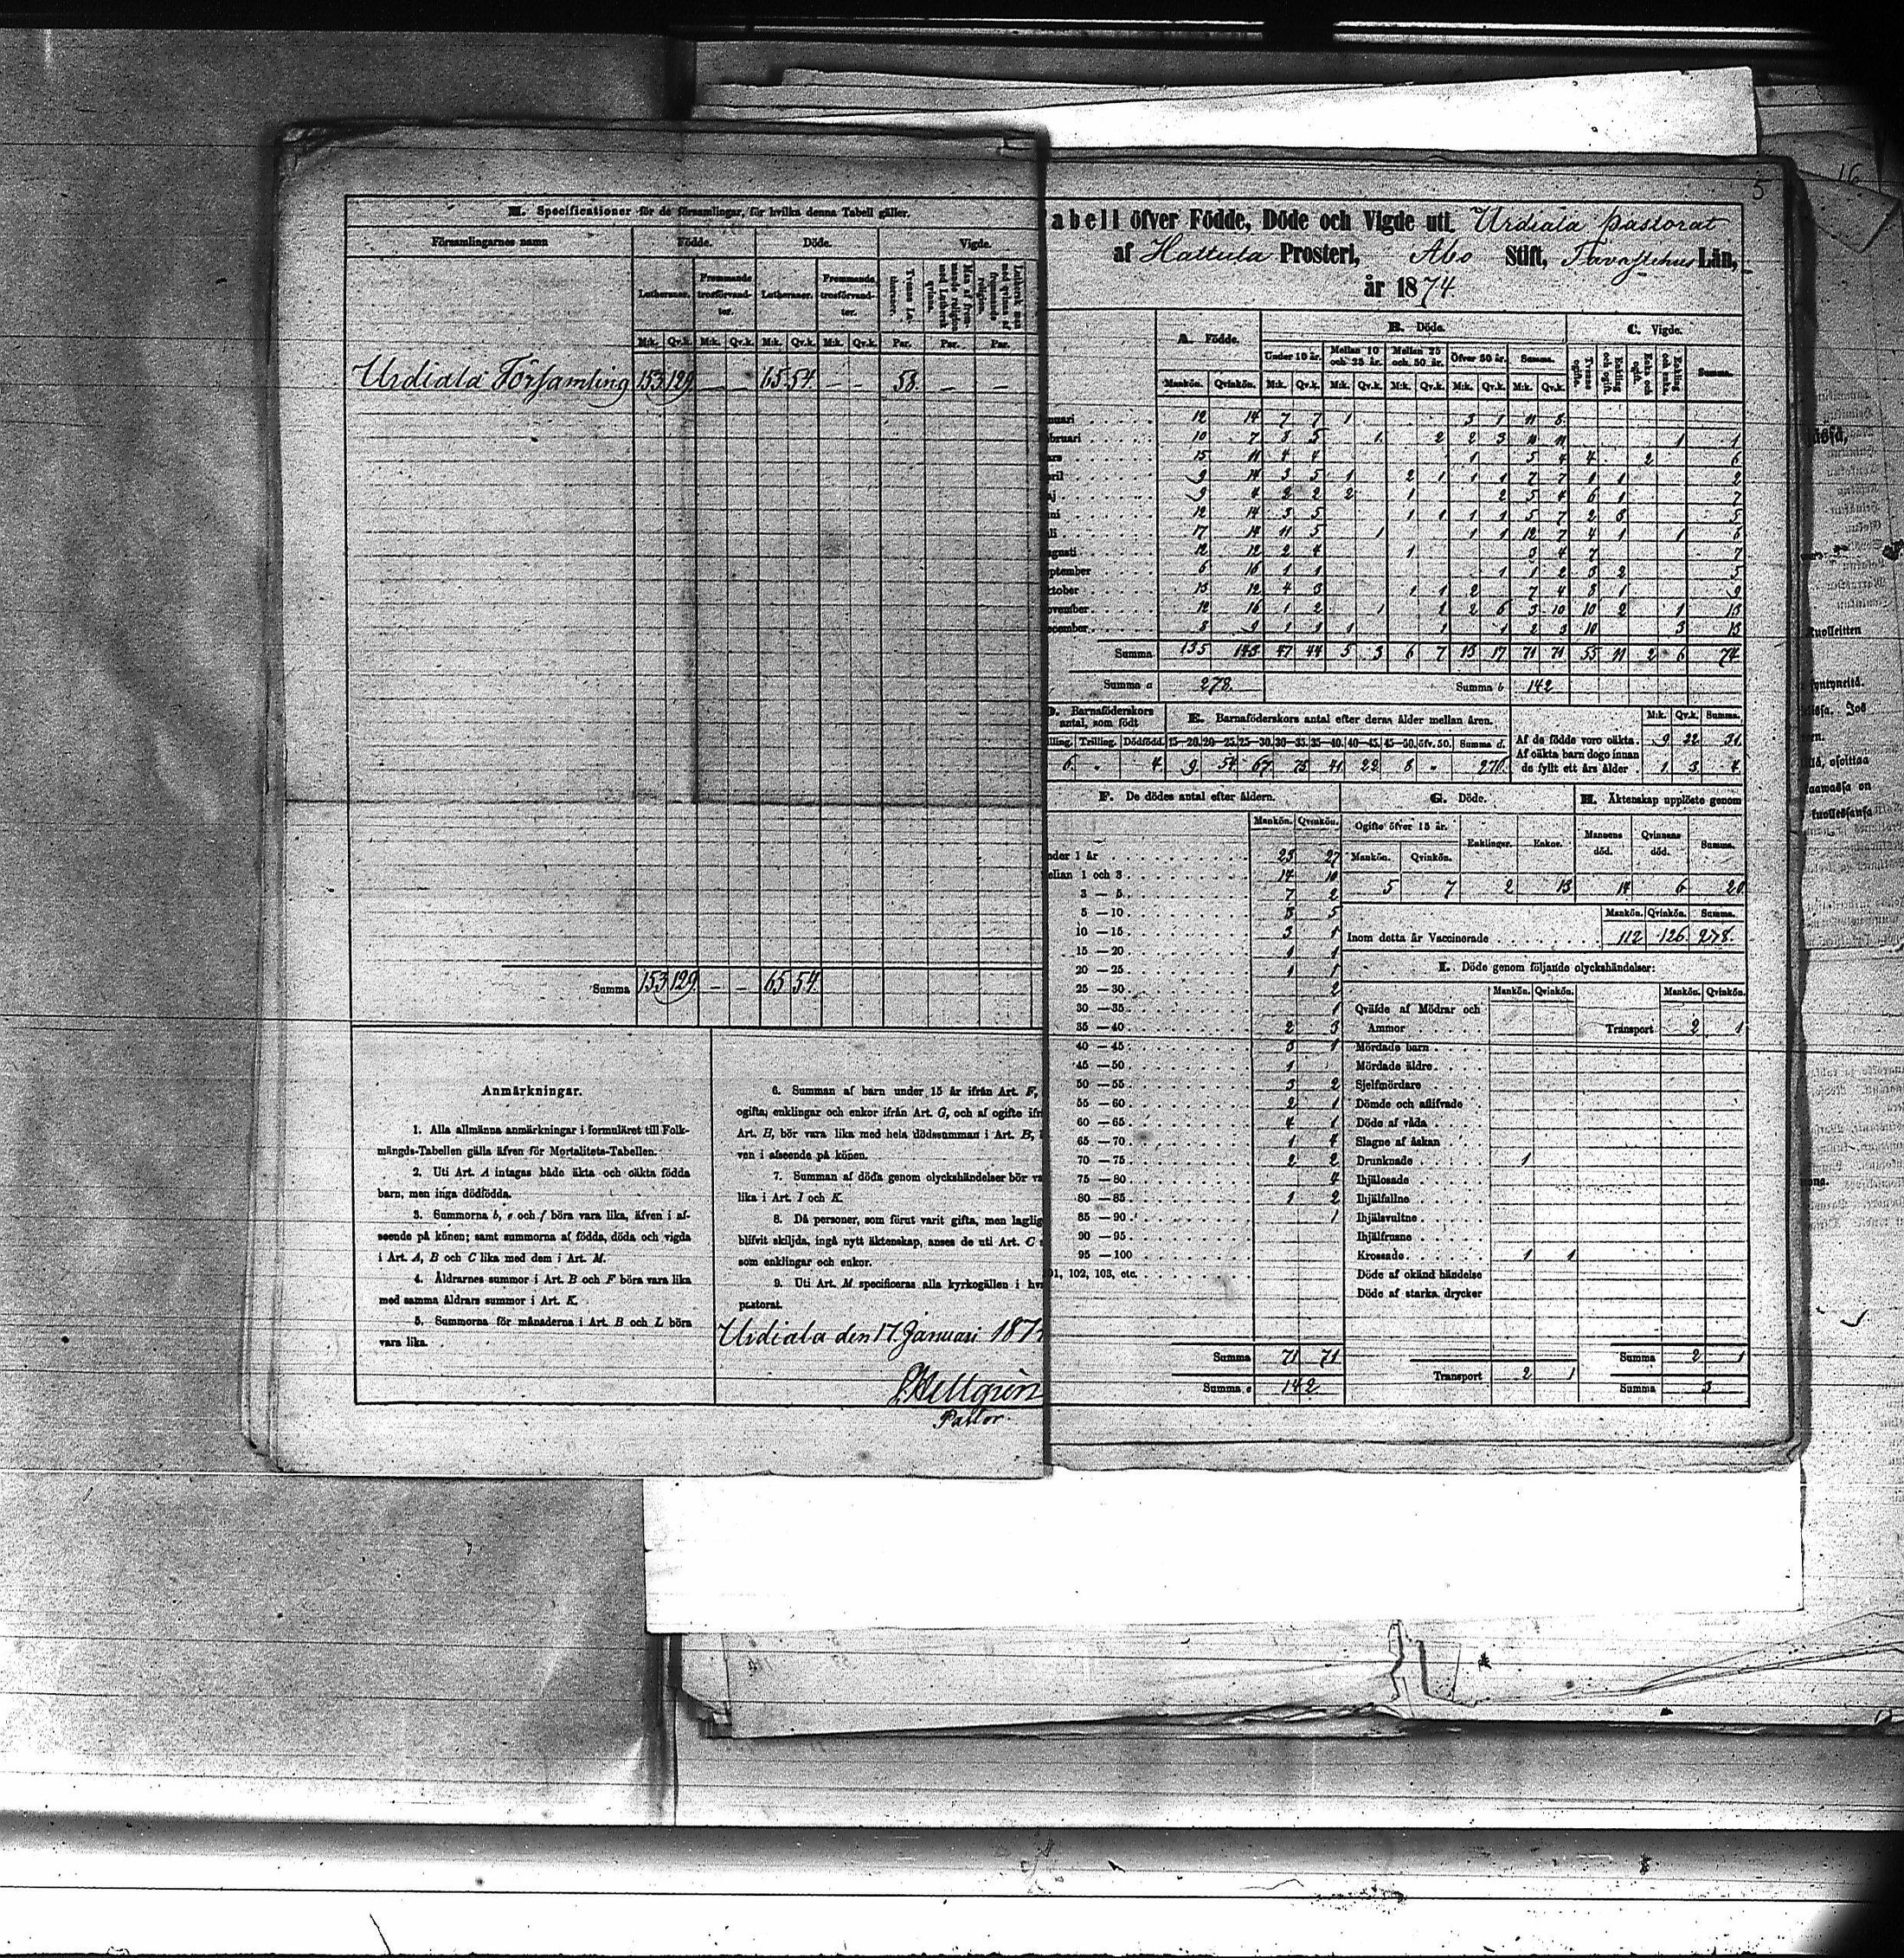 M. Specificationer för de församlingar, för hvilka denna Tabell gäller.
Församlingarnes namn Födde. Döde. Vigde.
Lutheraner. Främmande trosförvandter. Lutheraner. Främmande trosförvandter.
M:k. Qv.k. M:k. Qv.k. M:k. Qv.k. M:k. Qv.k. Par. Par. Par.
Urdiala Församling 153 129 — — 65 54 — — 58. — —
Summa 153 129 — — 65 54
Anmärkningar.
1. Alla allmänna anmärkningar i formuläret till Folk-
mängds-Tabellen gälla äfven för Mortalitets-Tabellen.
2. Uti Art. A intagas både äkta och oäkta födda
barn, men inga dödfödda.
3. Summorna b, e och f böra vara lika, äfven i af-
seende på könen; samt summorna af födda, döda och vigda
i Art. A, B och C lika med dem i Art. M.
4. Åldrarnes summor i Art. B och F böra vara lika
med samma åldrars summor i Art. K.
5. Summorna för månaderna i Art. B och L böra
vara lika.
6. Summan af barn under 15 år ifrån Art. F,
ogifta, enklingar och enkor ifrån Art. G, och af ogifte ifr
Art. H, bör vara lika med hela dödssumman i Art. B,
ven i afseende på könen.
7. Summan af döda genom olyckshändelser bör va
lika i Art. I och K.
8. Då personer, som förut varit gifta, men laglig
blifvit skiljda, ingå nytt äktenskap, anses de uti Art. C
som enklingar och enkor.
9. Uti Art. M specificeras alla kyrkogällen i hv
pastorat.
Urdiala den 17 Januari 187
Pastor.
5
abell öfver Födde, Döde och Vigde uti Urdiala pastorat
af Hattula Prosteri, Åbo Stift, Tavastehus Län,
år 1874.
A. Födde. B. Döde. C. Vigde.
Under 10 år. Mellan 10 och 25 år. Mellan 25 och 50 år. Öfver 50 år. Summa. Summa.
Mankön. Qvinkön. M:k. Qv.k. M:k. Qv.k. M:k. Qv.k. M:k. Qv.k. M:k. Qv.k.
nuari 12 14 7 7 1 3 1 11 8
bruari 10 7 8 5 1 2 2 3 10 11 1 1
ars 15 11 4 4 1 5 4 4 2 6
pril 9 14 3 5 1 2 1 1 1 7 7 1 1 2
aj 9 4 2 2 2 1 2 5 4 6 1 7
ni 12 14 3 5 1 1 1 1 5 7 2 3 5
li 17 14 11 5 1 1 1 12 7 4 1 1 6
ugusti 12 12 2 4 1 3 4 7 7
ptember 6 16 1 1 1 1 2 3 2 5
ktober 13 12 4 3 1 1 2 7 4 8 1 9
ovember 12 16 1 2 1 1 2 6 3 10 10 2 1 13
ecember 8 9 1 1 1 1 1 2 3 10 3 13
Summa 135 143 47 44 5 3 6 7 13 17 71 71 55 11 2 6 74
Summa a 278. Summa b 142
D. Barnaföderskors antal, som födt
illing. Trilling. Dödfödd.
6. " 4.
E. Barnaföderskors antal efter deras ålder mellan åren.
15—20. 20—25. 25—30. 30—35. 35—40. 40—45. 45—50. öfv. 50. Summa d.
9. 54 67 75 41 22 8 " 276.
M:k. Qv.k. Summa.
Af de födde voro oäkta. 9 22 31
Af oäkta barn dogo innan
de fyllt ett års ålder 1. 3. 4.
F. De dödes antal efter åldern.
Mankön. Qvinkön.
nder 1 år 23 27
ellan 1 och 3 14 10
3 — 5 7 2
5 — 10 3 5
10 — 15 3 1
15 — 20 1 1
20 — 25 1 1
25 — 30 2
30 — 35 1
35 — 40 2 3
40 — 45 3 1
45 — 50 1
50 — 55 3 2
55 — 60 2 1
60 — 65 4 1
65 — 70 1 4
70 — 75 2 2
75 — 80 4
80 — 85 1 2
85 — 90 1
90 — 95
95 — 100
01, 102, 103, etc.
Summa 71 71
Summa e 142
G. Döde.
Ogifte öfver 15 år. Enklingar. Enkor.
Mankön. Qvinkön.
5 7 2 13
H. Äktenskap upplöste genom
Mannens död. Qvinnans död. Summa.
14 6 20
Mankön. Qvinkön. Summa.
Inom detta år Vaccinerade 112 126 278.
I. Döde genom följande olyckshändelser:
Mankön. Qvinkön. Mankön. Qvinkön.
Qväfde af Mödrar och
Ammor Transport 2 1
Mördade barn
Mördade äldre
Sjelfmördare
Dömde och aflifvade
Döde af våda
Slagne af åskan
Drunknade 1
Ihjälosade
Ihjälfallne
Ihjälsvultne
Ihjälfrusne
Krossade 1 1
Döde af okänd händelse
Döde af starka drycker
Summa 2 1
Transport 2 1
Summa 3
16